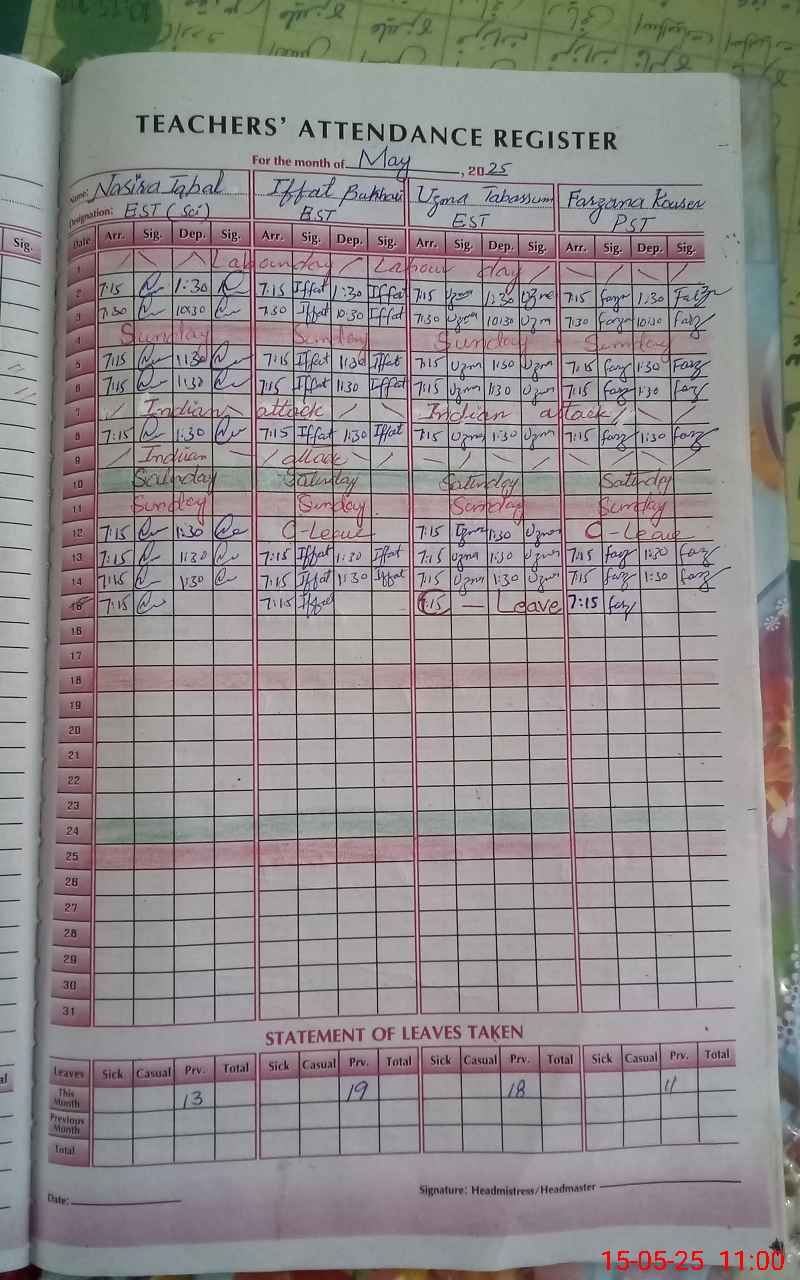 TEACHERS' ATTENDANCE REGISTER
For the month of May, 2025
Name: Nasira Iqbal Iffat Bukhari Uzma Tabassum Farzana Kouser
Designation: EST (Sci) EST EST PST
Date Arr. Sig. Dep. Sig. Arr. Sig. Dep. Sig. Arr. Sig. Dep. Sig. Arr. Sig. Dep. Sig.
Sig.
1 Labour day / Labour day
2 7:15 1:30 7:15 Iffat 1:30 Iffat 7:15 Uzma 1:30 Uzma 7:15 Farz 1:30 Farz
3 7:30 10:30 7:30 Iffat 10:30 Iffat 7:30 Uzma 10:30 Uzm 7:30 Farz 10:30 Farz
4 Sunday Sunday Sunday Sunday
5 7:15 1:30 7:15 Iffat 1:30 Iffat 7:15 Uzm 1:30 Uzm 7:15 Farz 1:30 Farz
6 7:15 1:30 7:15 Iffat 1:30 Iffat 7:15 Uzm 1:30 Uzm 7:15 Farz 1:30 Farz
7 Indian attack Indian attack
8 7:15 1:30 7:15 Iffat 1:30 Iffat 7:15 Uzm 1:30 Uzm 7:15 Farz 1:30 Farz
9 Indian attack
10 Saturday Saturday Saturday Saturday
11 Sunday Sunday Sunday Sunday
12 7:15 1:30 C-Leave 7:15 Uzm 1:30 Uzm C-Leave
13 7:15 1:30 7:15 Iffat 1:30 Iffat 7:15 Uzm 1:30 Uzm 7:15 Farz 1:30 Farz
14 7:15 1:30 7:15 Iffat 1:30 Iffat 7:15 Uzm 1:30 Uzm 7:15 Farz 1:30 Farz
15 7:15 7:15 Iffat 7:15 C — Leave 7:15 Farz
16
17
18
19
20
21
22
23
24
25
26
27
28
29
30
31
STATEMENT OF LEAVES TAKEN
Leaves Sick Casual Prv. Total Sick Casual Prv. Total Sick Casual Prv. Total Sick Casual Prv. Total
This Month 13 19 18 11
Previous Month
Total
Date: Signature: Headmistress/Headmaster
15-05-25 11:00